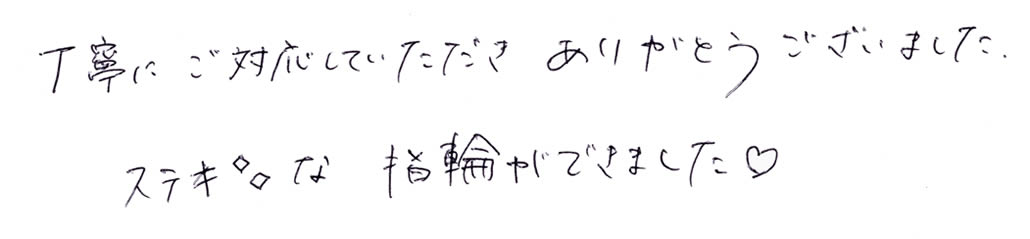 丁寧に ご対応していただき ありがとうございました.
ステキ◇◇な 指輪ができました♡